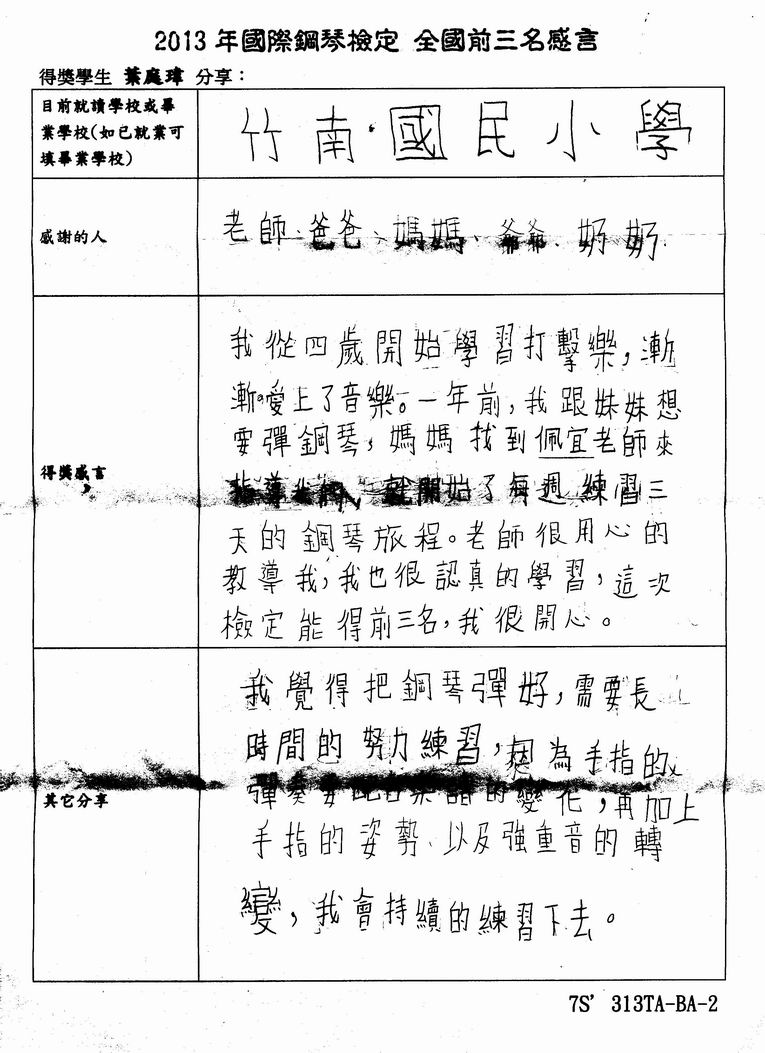 2013 年國際鋼琴檢定 全國前三名感言
得獎學生 葉庭瑋 分享：
目前就讀學校或畢
業學校(如已就業可
填畢業學校)
竹南國民小學
感謝的人
老師、爸爸、媽媽、爺爺、奶奶
得獎感言
我從四歲開始學習打擊樂，漸
漸愛上了音樂。一年前，我跟妹妹想
要彈鋼琴，媽媽找到佩宜老師來
指導我們，開始了每週練習三
天的鋼琴旅程。老師很用心的
教導我，我也很認真的學習，這次
檢定能得前三名，我很開心。
其它分享
我覺得把鋼琴彈好，需要長
時間的努力練習，因為手指的
彈奏要配合樂譜的變化，再加上
手指的姿勢、以及強重音的轉
變，我會持續的練習下去。
7S' 313TA-BA-2